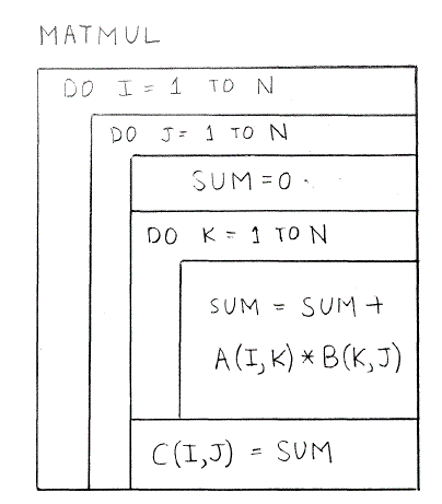 MATMUL
DO I = 1 TO N
DO J = 1 TO N
SUM = 0
DO K = 1 TO N
SUM = SUM +
A(I,K) * B(K,J)
C(I,J) = SUM